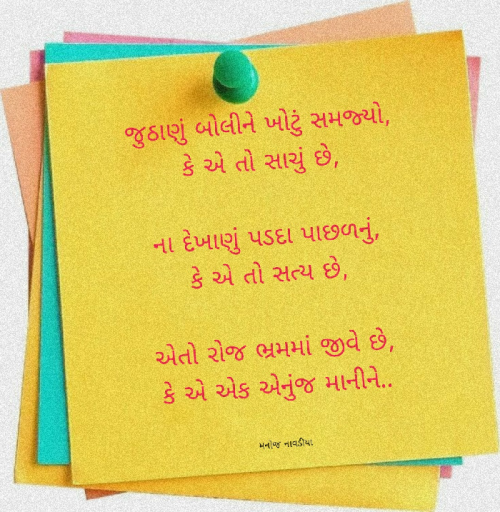 જુઠાણું બોલીને ખોટું સમજ્યો,
કે એ તો સાચું છે,
ના દેખાણું પડદા પાછળનું,
કે એ તો સત્ય છે,
એતો રોજ ભ્રમમાં જીવે છે,
કે એ એક એનુંજ માનીને..
મનોજ નાવડીયા